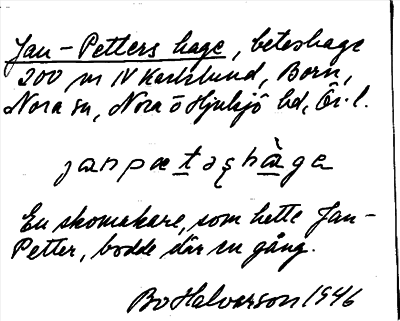 Jan-Petters hage, beteshage
200 m NV Karlslund, Born,
Nora sn, Nora o Hjulsjö bd, Ör. l.
janpætəshàge
En skomakare, som hette Jan-
Petter, bodde där en gång.
Bo Halvarson 1946